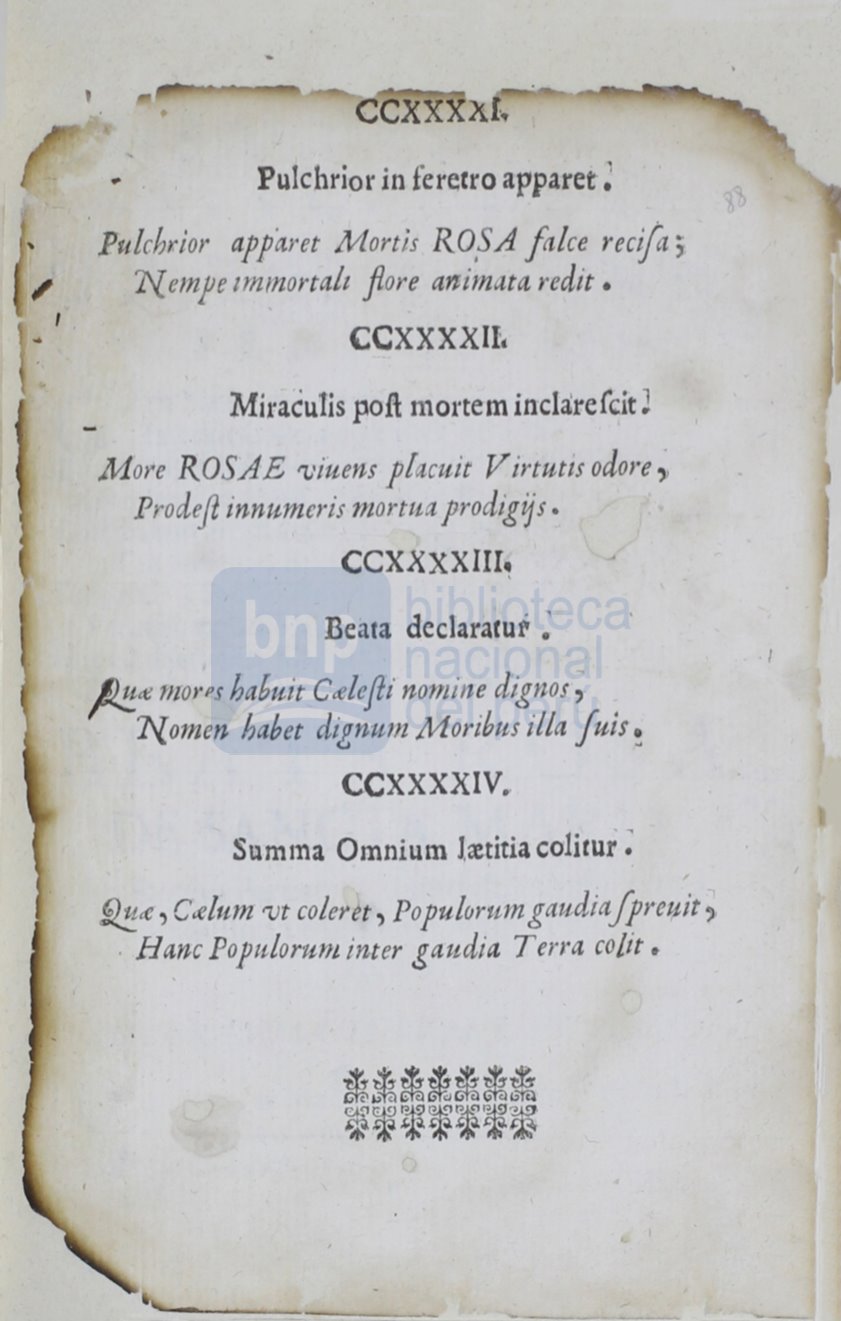 CCXXXXI.
88
Pulchrior in feretro apparet.
Pulchrior apparet Mortis ROSA falce recisa;
Nempe immortali flore animata redit.
CCXXXXII.
Miraculis post mortem inclarescit.
More ROSAE viuens placuit Virtutis odore,
Prodest innumeris mortua prodigijs.
CCXXXXIII.
Beata declaratur.
Quæ mores habuit Cælesti nomine dignos,
Nomen habet dignum Moribus illa suis.
CCXXXXIV.
Summa Omnium lætitia colitur.
Quæ, Cælum vt coleret, Populorum gaudia spreuit,
Hanc Populorum inter gaudia Terra colit.
bnp
biblioteca
nacional
del perú